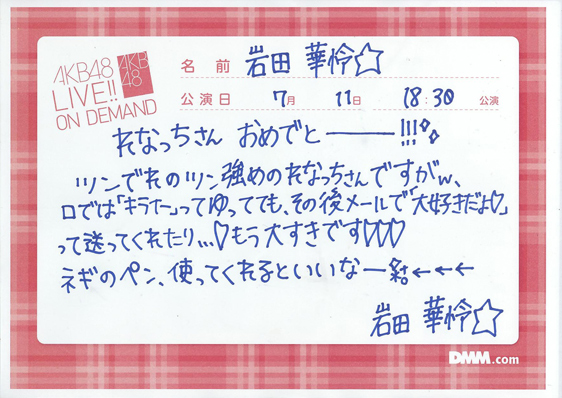 AKB48
LIVE!!
ON DEMAND
AKB
48
名前 岩田 華怜☆
公演日 7月 11日 18:30 公演
れなっちさん おめでとーーー!!!
ツンでれのツン強めのれなっちさんですがw、
口では「キラたー」ってゆってても、その後メールで「大好きだよ♡」
って送ってくれたり...♡もう大すきです♡♡♡
ネギのペン、使ってくれるといいなー ←←←
岩田 華怜☆
DMM.com